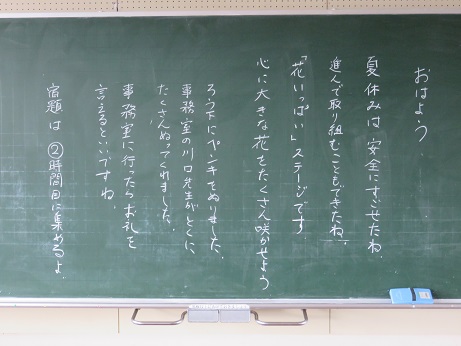 おはよう。
夏休みは、安全にすごせたね。
進んで取り組むこともできたね。
「花いっぱい」ステージです。
心に大きな花をたくさん咲かせよう
ろう下にペンキをぬりました。
事務室の川口先生がとくに、
たくさんぬってくれました。
事務室に行ったらお礼を
言えるといいですね。
宿題は②時間目に集めるよ。